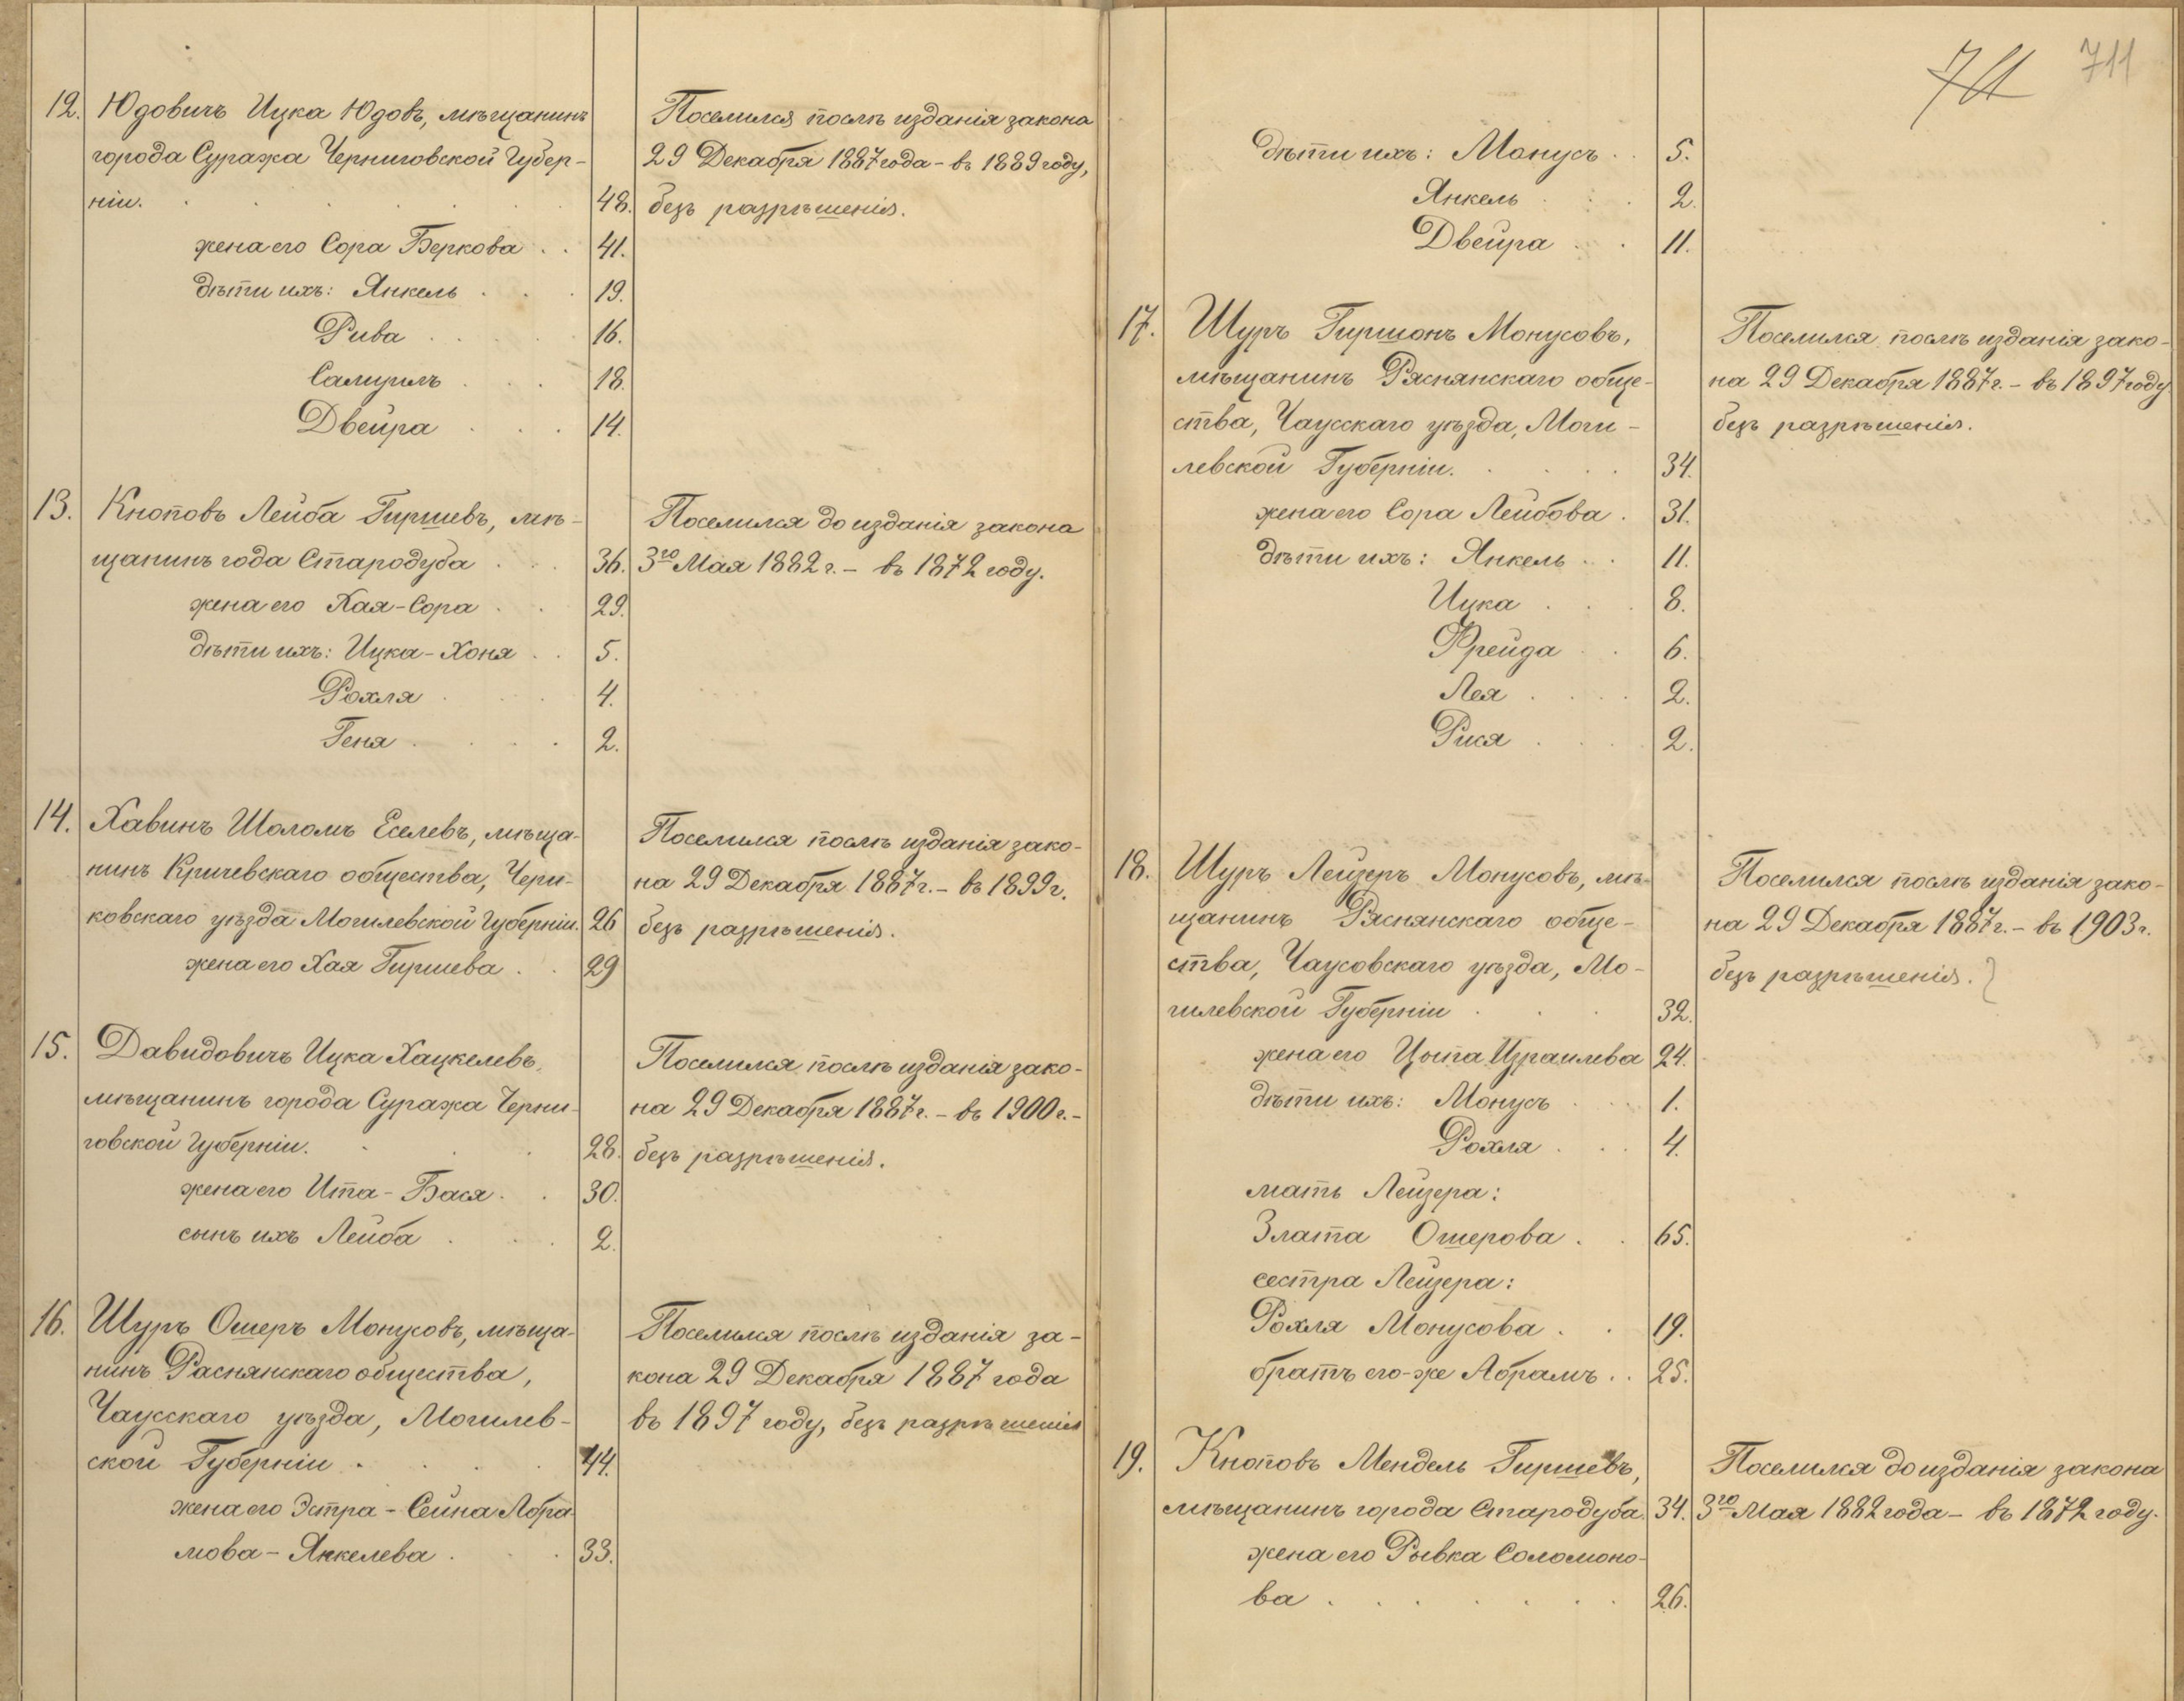 12. Юдовичъ Ицка Юдовъ, мѣщанинъ
города Суража Черниговской Губер-
ніи. 48.
жена его Сора Беркова 41.
дѣти ихъ: Янкель 19.
Рива 16.
Самуилъ 18.
Двейра 14.
Поселился послѣ изданія закона
29 Декабря 1887 года - въ 1889 году,
безъ разрѣшенія.
13. Кноповъ Лейба Гиршевъ, мѣ-
щанинъ года Стародуба 36.
жена его Хая-Сора 29.
дѣти ихъ: Ицка-Хоня 5.
Рохля 4.
Геня 2.
Поселился до изданія закона
3го Мая 1882 г. - въ 1872 году.
14. Хавинъ Шоломъ Еселевъ, мѣща-
нинъ Кричевскаго общества, Чери-
ковскаго уѣзда Могилевской Губерніи. 26
жена его Хая Гиршева 29
Поселился послѣ изданія зако-
на 29 Декабря 1887 г. - въ 1899 г.
безъ разрѣшенія.
15. Давидовичъ Ицка Хацкелевъ,
мѣщанинъ города Суража Черни-
говской Губерніи. 28.
жена его Ита-Бася 30.
сынъ ихъ Лейба 2.
Поселился послѣ изданія зако-
на 29 Декабря 1887 г. - въ 1900 г. -
безъ разрѣшенія.
16. Шуръ Ошеръ Монусовъ, мѣща-
нинъ Раснянскаго общества,
Чаусскаго уѣзда, Могилев-
ской Губерніи 44.
жена его Эстра-Сейна Абра-
мова-Янкелева 33.
Поселился послѣ изданія за-
кона 29 Декабря 1887 года
въ 1897 году, безъ разрѣшенія
711
711
дѣти ихъ: Монусъ 5.
Янкель 2.
Двейра 11.
17. Шуръ Гиршонъ Монусовъ,
мѣщанинъ Ряснянскаго обще-
ства, Чаусскаго уѣзда, Моги-
левской Губерніи. 34.
жена его Сора Лейбова 31.
дѣти ихъ: Янкель 11.
Ицка 8.
Фрейда 6.
Лея 2.
Рися 2.
Поселился послѣ изданія зако-
на 29 Декабря 1887 г. - въ 1897 году
безъ разрѣшенія.
18. Шуръ Лейзеръ Монусовъ, мѣ-
щанинъ Ряснянскаго обще-
ства, Чаусовскаго уѣзда, Мо-
гилевской Губерніи 32.
жена его Цыпа Израилева 24.
дѣти ихъ: Монусъ 1.
Рохля 4.
мать Лейзера:
Злата Ошерова 65.
сестра Лейзера:
Рохля Монусова 19.
братъ его-же Абрамъ 25.
Поселился послѣ изданія зако-
на 29 Декабря 1887 г. - въ 1903 г.
безъ разрѣшенія.
19. Кноповъ Мендель Гиршевъ,
мѣщанинъ города Стародуба. 34.
жена его Рывка Соломоно-
ва 26.
Поселился до изданія закона
3го Мая 1882 года - въ 1872 году.